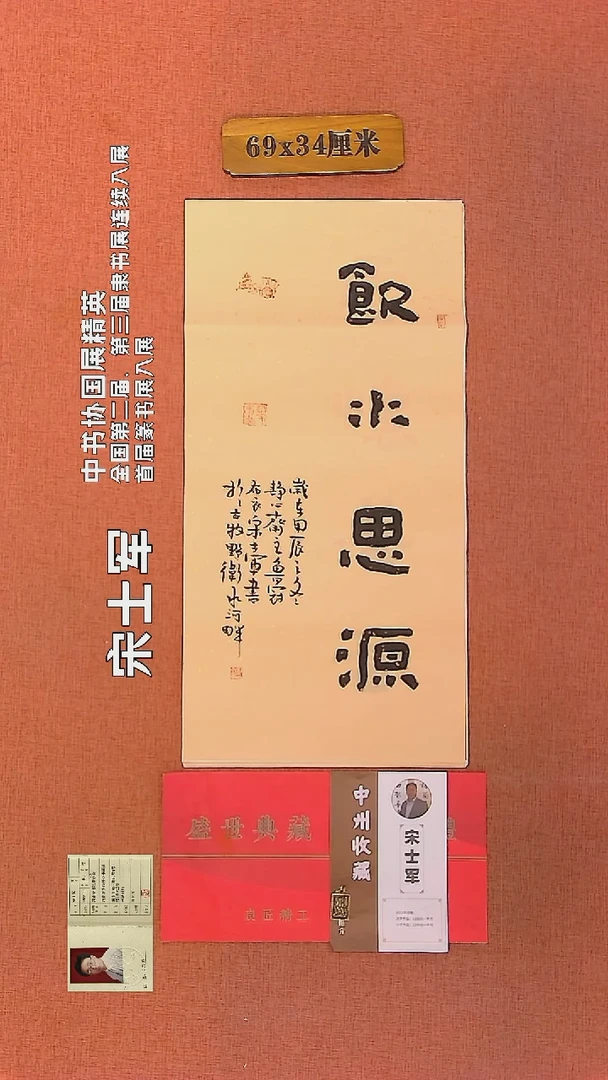 69x34厘米
中书协国展精英
全国第二届、第三届隶书展连续入展
首届篆书展入展
宋士军
飲水思源
歲在甲辰之冬
靜心齋主魚寫
於古牧野衛水河畔
盛世典藏
良匠精工
中州收藏
宋士军